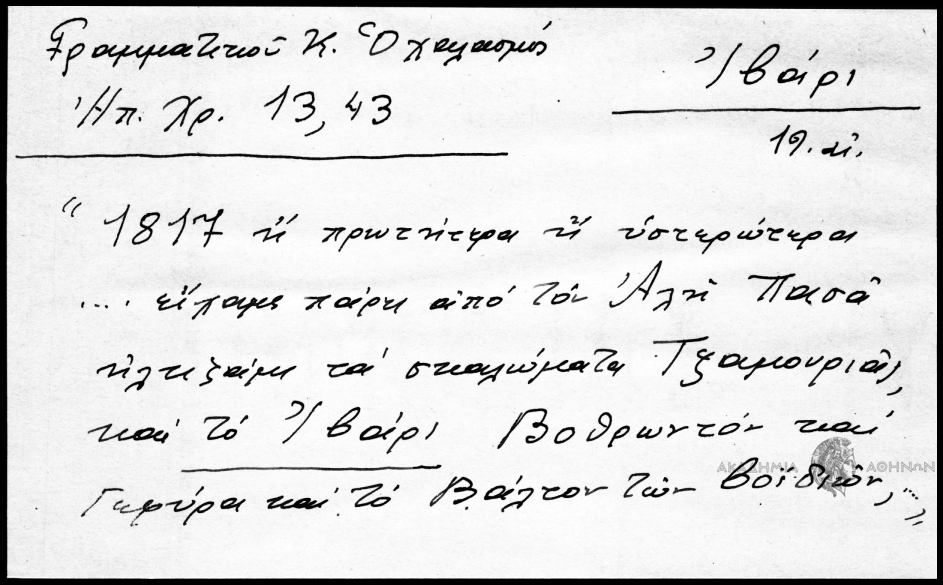 Γραμματικού Κ. Ὁ χαλασμός
Ἠπ. Χρ. 13, 43
Ἰβάρι
19. αἰ.
“ 1817 ἤ πρωτήτερα ἤ ὑστερώτερα
... εἴχαμε πάρη ἀπό τόν Ἀλῆ Πασᾶ
ἠλτιζάμι τά σκαλώματα Τζαμουριᾶς,
καί τό Ἰβάρι Βοθρωντόν καί
Γεφύρα καί τό Βάλτον τῶν Βοϊδιῶν,,,
ΑΚΑΔΗΜΙΑ ΑΘΗΝΩΝ